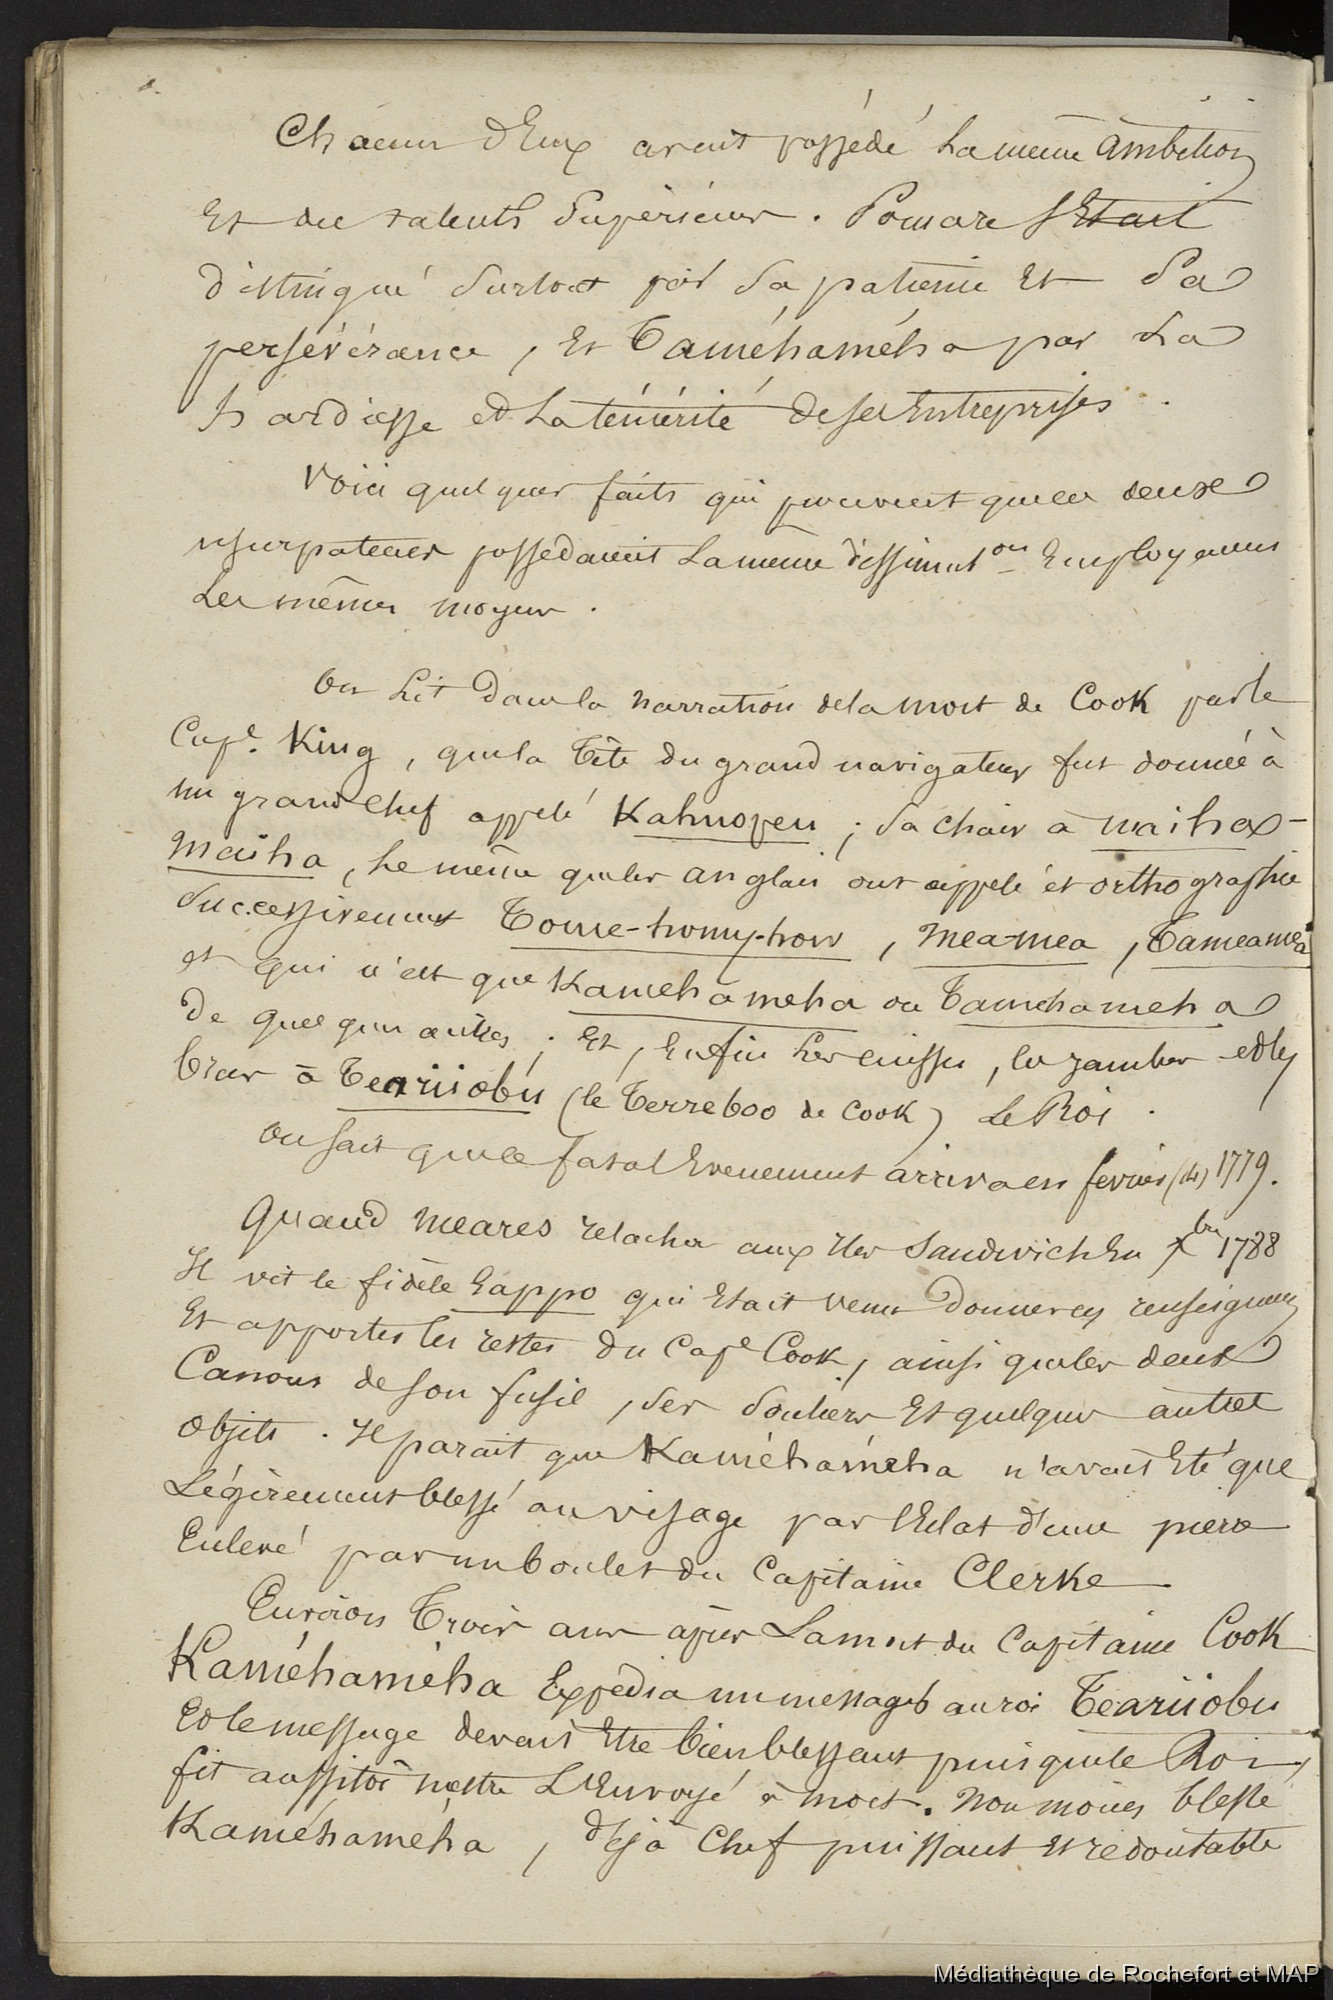 Chacun d'Eux avait possédé la même ambition
Et des talents Supérieurs. Pomare s'Etait
distingué Surtout par Sa patience Et Sa
persévérance, Et Taméhaméha par La
hardiesse et La témérité de ses Entreprises.
Voici quelques faits qui prouvent que les deux
usurpateurs possédaient La même dissimulon Employaient
Les mêmes moyens.
On Lit dans la narration de la mort de Cook par le
Cape. King, que la Tête du grand navigateur fut donnée à
un grand chef appelé Kahuopeu; Sa chair à maiha-
maiha, Le même que les anglais ont appelé et orthographié
Successivement Tome-homy-how, mea-mea, Tameamea
et qui n'est que Kamehameha ou Tamehameha
de quelques autres; Et, Enfin Les cuisses, les jambes et les
bras à Teariiobu (le Terreboo de Cook) Le Roi.
On sait que ce fatal Evenement arriva en fevrier (14) 1779.
Quand Meares relacha aux Iles Sandwich En Xbre 1788
Il vit le fidèle Eappo qui Etait venu donner des renseignemens
Et apporter les restes du Cape Cook, ainsi que les deux
Canons de son fusil, Ses Souliers Et quelques autres
objets. Il parait que Kaméhaméha n'avait Eté que
Légèrement blessé au visage par l'Eclat d'une pierre
Enlevé par un boulet du Capitaine Clerke
Environ Trois ans après La mort du Capitaine Cook
Kaméhaméha Expédia un message au roi Teariiobu
Et le message devait Etre bien blessant puisque le Roi
fit aussitôt mettre L'Envoyé à mort. Non moins blessé
Kaméhaméha, déjà Chef puissant Et redoutable
Médiathèque de Rochefort et MAP